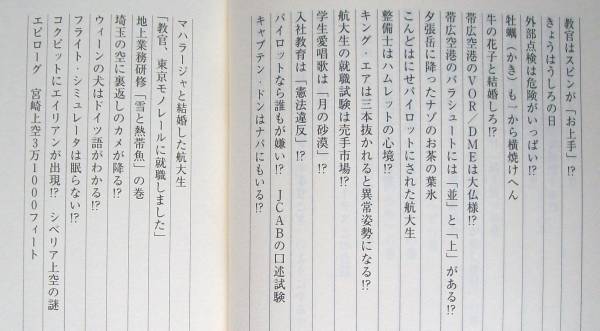 教官はスピンが「お上手」!?
きょうはうしろの日
外部点検は危険がいっぱい!?
牡蠣(かき)も一から横焼けへん
牛の花子と結婚しろ!?
帯広空港のVOR/DMEは大仏様!?
帯広空港のパラシュートには「並」と「上」がある!?
夕張岳に降ったナゾのお茶の葉氷
こんどはにせパイロットにされた航大生
整備士はハムレットの心境!?
キング・エアは三本抜かれると異常姿勢になる!?
航大生の就職試験は売手市場!?
学生愛唱歌は「月の砂漠」!?
入社教育は「憲法違反」!?
パイロットなら誰もが嫌い!? JCABの口述試験
キャプテン・ドンはナパにもいる!?
マハラージャと結婚した航大生
「教官、東京モノレールに就職しました」
地上業務研修「雪と熱帯魚」の巻
埼玉の空に裏返しのカメが降る!?
ウィーンの犬はドイツ語がわかる!?
フライト・シミュレータは眠らない!?
コクピットにエイリアンが出現!? シベリア上空の謎
エピローグ 宮崎上空3万1000フィート